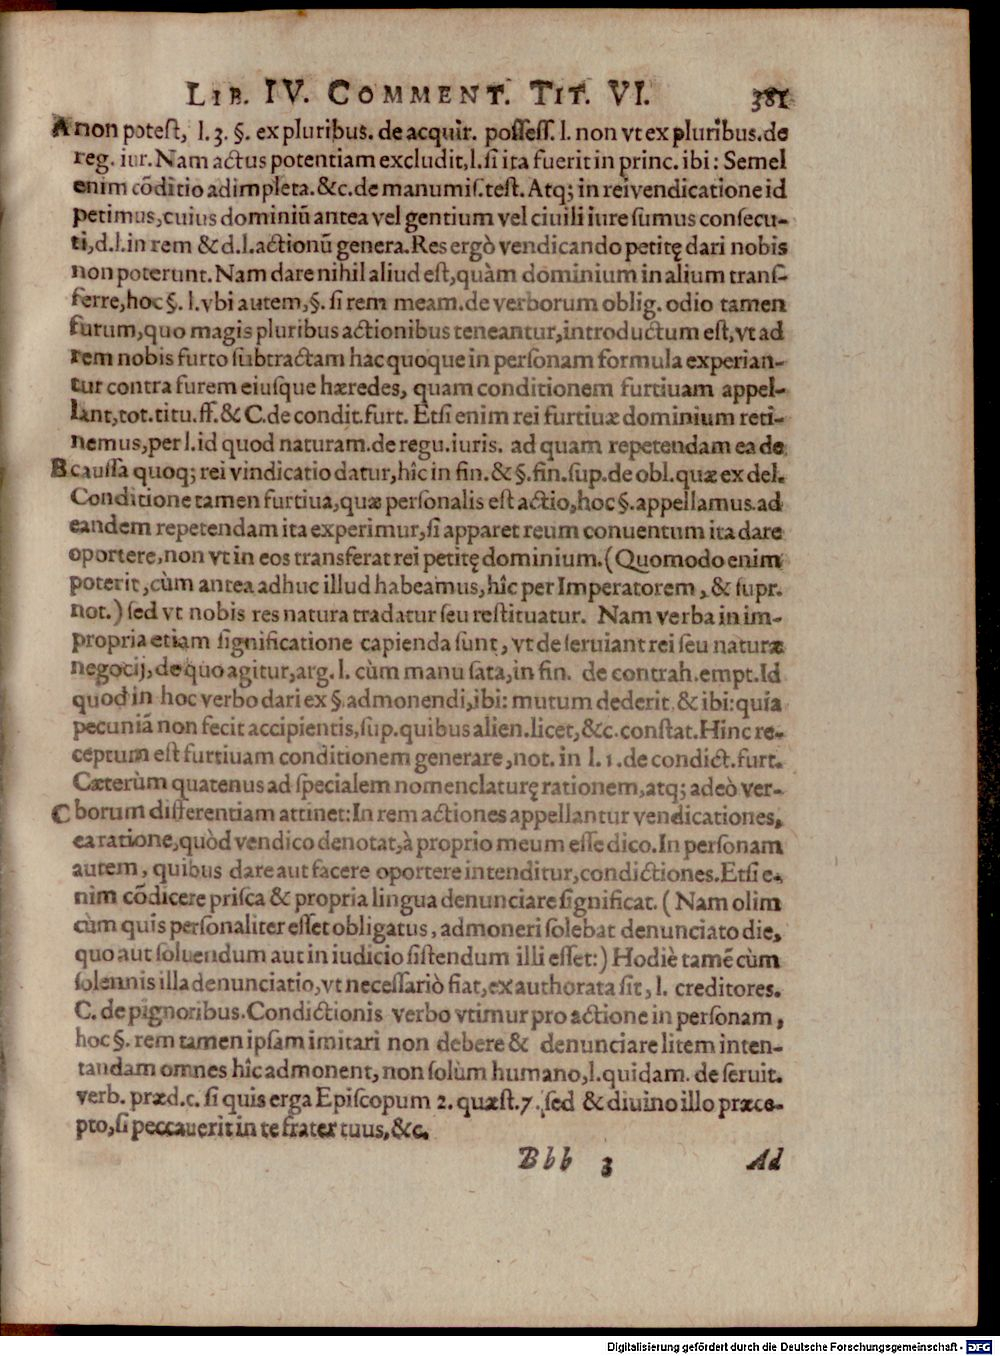 LIB. IV. COMMENT. TIT. VI. 381
A non potest, l. 3. §. ex pluribus. de acquir. possess. l. non vt ex pluribus. de
reg. iur. Nam actus potentiam excludit, l. si ita fuerit in princ. ibi: Semel
enim cõditio adimpleta. &c. de manumis. test. Atq; in rei vendicatione id
petimus, cuius dominiũ antea vel gentium vel ciuili iure sumus consecu-
ti, d. l. in rem & d. l. actionũ genera. Res ergò vendicando petitę dari nobis
non poterunt. Nam dare nihil aliud est, quàm dominium in alium trans-
ferre, hoc §. l. vbi autem, §. si rem meam. de verborum oblig. odio tamen
furum, quo magis pluribus actionibus teneantur, introductum est, vt ad
rem nobis furto subtractam hac quoque in personam formula experian-
tur contra furem eiusque hæredes, quam conditionem furtiuam appel-
lant, tot. titu. ff. & C. de condit. furt. Etsi enim rei furtiuæ dominium reti-
nemus, per l. id quod naturam. de regu. iuris. ad quam repetendam ea de
B caussa quoq; rei vindicatio datur, hîc in fin. & §. fin. sup. de obl. quæ ex del.
Conditione tamen furtiua, quæ personalis est actio, hoc §. appellamus. ad
eandem repetendam ita experimur, si apparet reum conuentum ita dare
oportere, non vt in eos transferat rei petitę dominium. (Quomodo enim
poterit, cùm antea adhuc illud habeamus, hîc per Imperatorem, & supr.
not.) sed vt nobis res natura tradatur seu restituatur. Nam verba in im-
propria etiam significatione capienda sunt, vt deseruiant rei seu naturæ
negocij, de quo agitur, arg. l. cùm manu sata, in fin. de contrah. empt. Id
quod in hoc verbo dari ex §. admonendi, ibi: mutum dederit & ibi: quia
pecuniã non fecit accipientis, sup. quibus alien. licet, &c. constat. Hinc re-
ceptum est furtiuam conditionem generare, not. in l. 1. de condict. furt.
Cæterùm quatenus ad specialem nomenclaturę rationem, atq; adeò ver-
C borum differentiam attinet: In rem actiones appellantur vendicationes,
ea ratione, quòd vendico denotat, à proprio meum esse dico. In personam
autem, quibus dare aut facere oportere intenditur, condictiones. Etsi e-
nim cõdicere prisca & propria lingua denunciare significat. (Nam olim
cùm quis personaliter esset obligatus, admoneri solebat denunciato die,
quo aut soluendum aut in iudicio sistendum illi esset:) Hodiè tamẽ cùm
solennis illa denunciatio, vt necessariò fiat, exauthorata sit, l. creditores.
C. de pignoribus. Condictionis verbo vtimur pro actione in personam,
hoc §. rem tamen ipsam imitari non debere & denunciare litem inten-
tandam omnes hîc admonent, non solùm humano, l. quidam. de seruit.
verb. præd. c. si quis erga Episcopum 2. quæst. 7. sed & diuino illo præce-
pto, si peccauerit in te frater tuus, &c.
Bbb 3 Ad
Digitalisierung gefördert durch die Deutsche Forschungsgemeinschaft - DFG